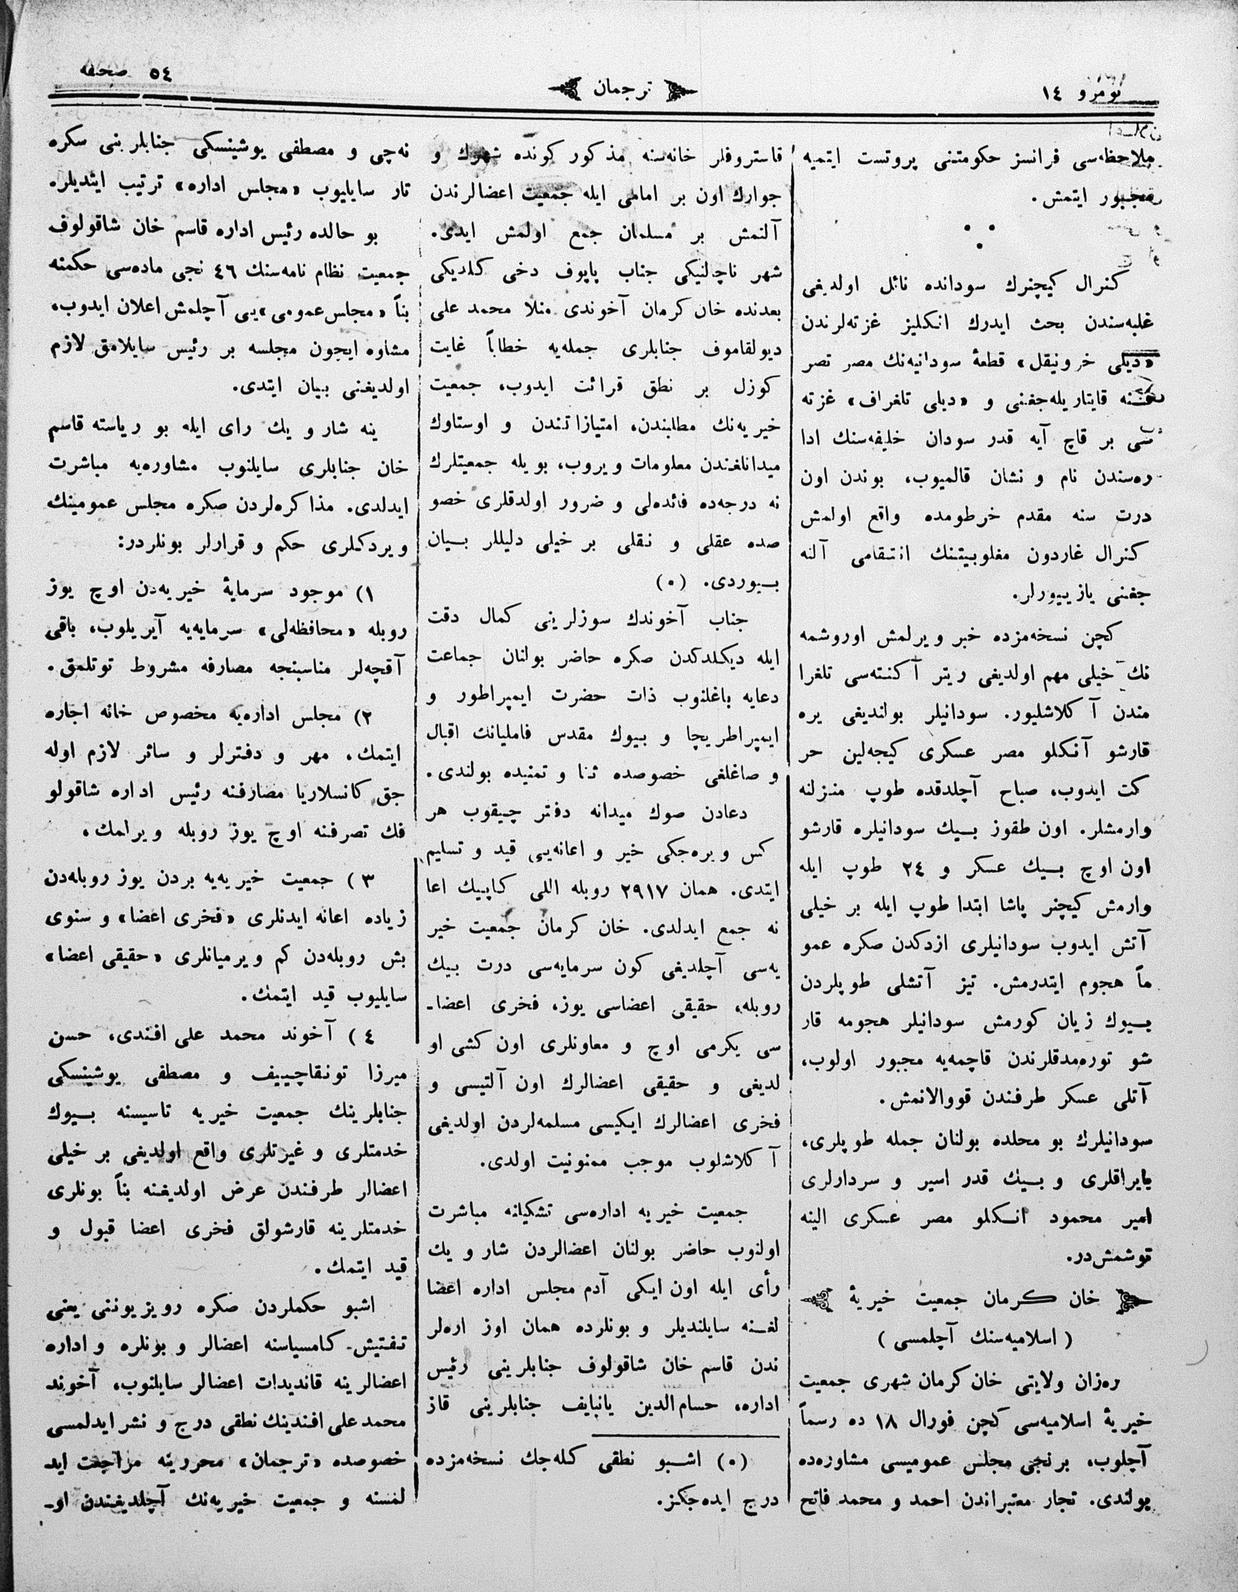 نومرو ١٤
ترجمان
٥٤ صحفه
ملاحظه‌سی فرانسز حکومتنی پروتست ایتمیه
مجبور ایتمش.
کنرال کیچنرك سودانده نائل اولدیغی
غلبه‌سندن بحث ایدرك انکلیز غزته‌لرندن
«دیلی خرونیقل» قطعهٔ سودانیه‌نك مصر تصر
فنه قایتاریله‌جغنی و «دیلی تلغراف» غزته
سی بر قاچ آیه قدر سودان خلیفه‌سنك ادا
ره‌سندن نام و نشان قالمیوب، بوندن اون
درت سنه مقدم خرطومده واقع اولمش
کنرال غاردون مغلوبیتنك انتقامی آلنه
جغنی یازیبورلر.
کچن نسخه‌مزده خبر ویرلمش اوروشمه
نك خیلی مهم اولدیغی ریتر آکنته‌سی تلغرا
مندن آکلاشلیور. سودانیلر بولندیغی یره
قارشو آنکلو مصر عسکری کیجه‌لین حر
کت ایدوب، صباح آچلدقده طوپ منزلنه
وارمشلر. اون طقوز بیك سودانیلره قارشو
اون اوچ بیك عسکر و ٢٤ طوپ ایله
وارمش کیچنر پاشا ابتدا طوپ ایله بر خیلی
آتش ایدوب سودانیلری ازدکدن صکره عمو
ماً هجوم ایتدرمش. تیز آتشلی طوپلردن
بیوك زیان کورمش سودانیلر هجومه قار
شو توره‌مدقلرندن قاچمه‌یه مجبور اولوب،
آتلی عسکر طرفندن قووالانمش.
سودانیلرك بو محلده بولنان جمله طوپلری،
بایراقلری و بیك قدر اسیر و سردارلری
امیر محمود انکلو مصر عسکری الینه
توشمش‌در.
خان کرمان جمعیت خیریهٔ
( اسلامیه‌سنك آچلمسی )
ره‌زان ولایتی خان کرمان شهری جمعیت
خیریهٔ اسلامیه‌سی کچن فورال ١٨ ده رسماً
آچلوب، برنجی مجلس عمومیسی مشاوره‌ده
بولندی. تجار معتبراندن احمد و محمد فاتح
قاستروفلر خانه‌سنه مذکور کونده شهرك و
جوارك اون بر امامی ایله جمعیت اعضالرندن
آلتمش بر مسلمان جمع اولمش ایدی.
شهر ناچالنیکی جناب پاپوف دخی کلدیکی
بعدنده خان کرمان آخوندی منلا محمد علی
دیولقاموف جنابلری جمله‌یه خطاباً غایت
کوزل بر نطق قرائت ایدوب، جمعیت
خیریه‌نك مطلبندن، امتیازاتندن و اوستاوك
میدانلغندن معلومات ویروب، بویله جمعیتلرك
نه درجه‌ده فائده‌لی و ضرور اولدقلری خصو
صده عقلی و نقلی بر خیلی دلیللر بیان
بیوردی. (٥)
جناب آخوندك سوزلرینی کمال دقت
ایله دیکلدکدن صکره حاضر بولنان جماعت
دعایه باغلنوب ذات حضرت ایمپراطور و
ایمپراطریچا و بیوك مقدس فاملیانك اقبال
و صاغلغی خصوصده ثنا و تمنیده بولندی.
دعادن صوك میدانه دفتر چیقوب هر
کس ویره‌جکی خیر و اعانه‌یی قید و تسلیم
ایتدی. همان ٢٩١٧ روبله اللی کاپیك اعا
نه جمع ایدلدی. خان کرمان جمعیت خیر
یه‌سی آچلدیغی کون سرمایه‌سی درت بیك
روبله، حقیقی اعضاسی یوز، فخری اعضا-
سی یکرمی اوچ و معاونلری اون کشی او
لدیغی و حقیقی اعضالرك اون آلتیسی و
فخری اعضالرك ایکیسی مسلمه‌لردن اولدیغی
آکلاشلوب موجب ممنونیت اولدی.
جمعیت خیریه اداره‌سی تشکیلنه مباشرت
اولنوب حاضر بولنان اعضالردن شار ویك
رأی ایله اون ایکی آدم مجلس اداره اعضا
لغنه سایلندیلر و بونلرده همان اوز اره‌لر
ندن قاسم خان شاقولوف جنابلرینی رئیس
اداره، حسام‌الدین یانبایف جنابلرینی قاز
(٥) اشبو نطقی کله‌جك نسخه‌مزده
درج ایده‌جکز.
نه‌چی و مصطفی یوشینسکی جنابلرینی سکره
تار سایلیوب «مجلس اداره» ترتیب ایتدیلر.
بو حالده رئیس اداره قاسم خان شاقولوف
جمعیت نظام نامه‌سنك ٤٦ نجی ماده‌سی حکمنه
بناً «مجلس عمومی»یی آچلمش اعلان ایدوب،
مشاوه ایچون مجلسه بر رئیس سایلامق لازم
اولدیغنی بیان ایتدی.
ینه شار ویك رای ایله بو ریاسته قاسم
خان جنابلری سایلنوب مشاوره‌یه مباشرت
ایدلدی. مذاکره‌لردن صکره مجلس عمومینك
ویردکلری حکم و قرارلر بونلردر:
١) موجود سرمایهٔ خیریه‌دن اوچ یوز
روبله «محافظه‌لی» سرمایه‌یه آیریلوب، باقی
آقچه‌لر مناسبنجه مصارفه مشروط توتلمق.
٢) مجلس اداره‌یه مخصوص خانه اجاره
ایتمك، مهر و دفترلر و سائر لازم اوله
جق کانسلاریا مصارفنه رئیس اداره شاقولو
فك تصرفنه اوچ یوز روبله ویرلمك.
٣) جمعیت خیریه‌یه بردن یوز روبله‌دن
زیاده اعانه ایدنلری «فخری اعضا» و سنوی
بش روبله‌دن کم ویرمیانلری «حقیقی اعضا»
سایلیوب قید ایتمك.
٤) آخوند محمد علی افندی، حسن
میرزا تونقاچییف و مصطفی یوشینسکی
جنابلرینك جمعیت خیریه تاسیسنه بیوك
خدمتلری و غیرتلری واقع اولدیغی بر خیلی
اعضالر طرفندن عرض اولدیغنه بناً بونلری
خدمتلرینه قارشولق فخری اعضا قبول و
قید ایتمك.
اشبو حکملردن صکره رویزیوننی یعنی
تفتیش کامسیاسنه اعضالر و بونلره و اداره
اعضالرینه قاندیدات اعضالر سایلنوب، آخوند
محمد علی افندینك نطقی درج و نشر ایدلمسی
خصوصده «ترجمان» محررینه مراجعت اید
لمسنه و جمعیت خیریه‌نك آچلدیغندن او-